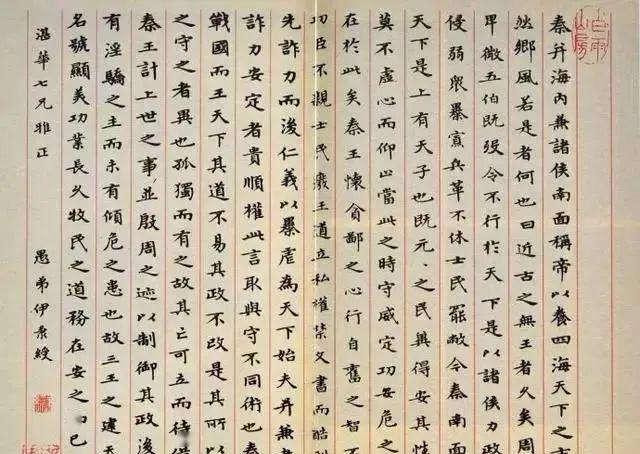 秦并海内兼諸侯南面稱帝以養四海天下之士
然鄉風若是者何也曰近古之無王者久矣周
卑微五伯既歿令不行於天下是以諸侯力政
侵弱眾暴寡兵革不休士民罷敝今秦南面
天下是上有天子也既元〻之民冀得安其性
莫不虛心而仰上當此之時守威定功安危之
在於此矣秦王懷貪鄙之心行自奮之智不
功臣不親士民廢王道立私權禁文書而酷
先詐力而後仁義以暴虐為天下始夫并兼者
詐力安定者貴順權此言取與守不同術也秦
戰國而王天下其道不易其政不改是其所以
之守之者異也孤獨而有之故其亡可立而待借
秦王計上世之事並殷周之迹以制御其政後
有淫驕之主而未有傾危之患也故三王之建天
名號顯美功業長久牧民之道務在安之〻已
湛華七兄雅正 愚弟伊秉綬